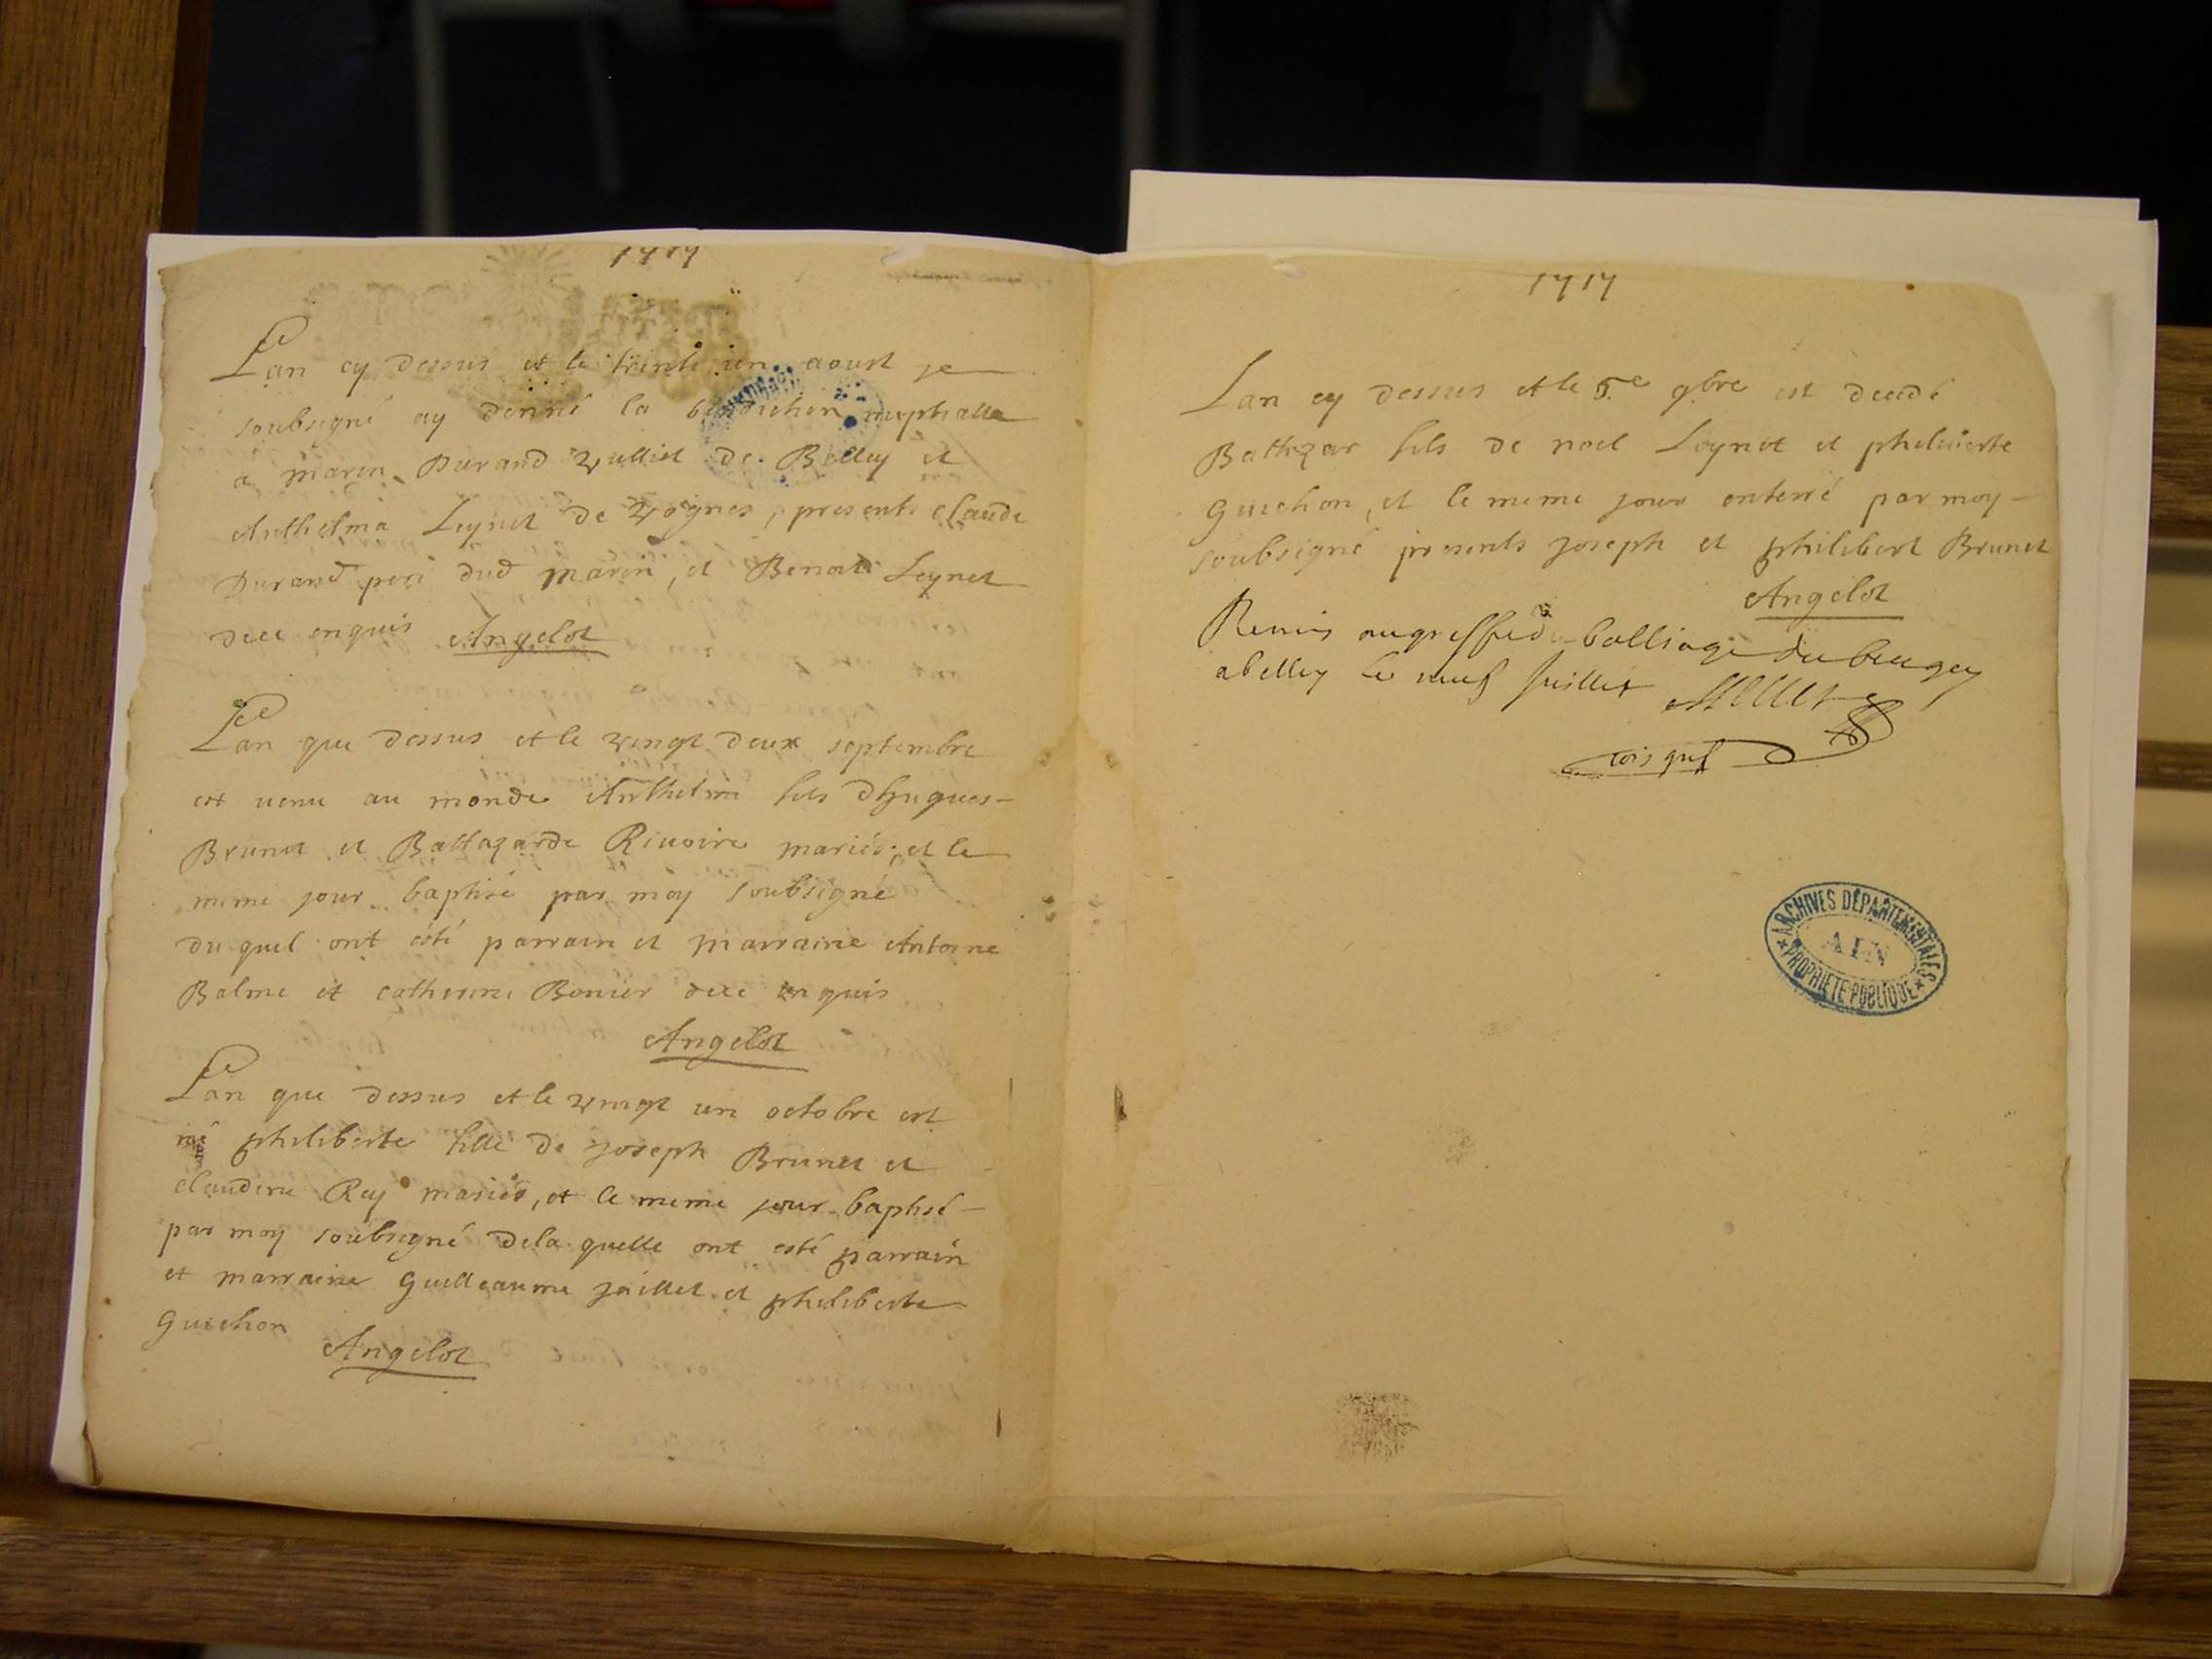 1717
Lan cy dessus et le trente un aoust je
soubsigné ay donné la benediction nuptialle
a marin Durand vulliet de Belley et
Anthelma Leynet de vognes, presents Claude
Durand pere dud marin, et Benoit Leynet
dece enquis Angelot
Lan que dessus et le vingt deux septembre
est venu au monde Anthelme fils dhugues
Brunet et Baltazarde Rivoire mariés, et le
meme jour baptisé par moy soubsigné
du quel ont esté parrain et marraine Antoine
Balme et catherine Bonier dece enquis
Angelot
Lan que dessus et le vingt un octobre est
né philiberte fille de joseph Brunet et
claudine Rey mariés, et le meme jour baptisé
par moy soubsigné dela quelle ont esté parrain
et marraine Guilleaume jaillet et philiberte
Guichon
Angelot
1717
Lan cy dessus et le 5e 9bre est decedé
Baltazar fils de noel Leynet et philiberte
Guichon, et le meme jour enterré par moy
soubsigné presents joseph et philibert Brunet
Angelot
Remis au greffe du balliage du beugey
a belley le neuf juillet
ARCHIVES DÉPARTEMENTALES
AIN
PROPRIÉTÉ PUBLIQUE